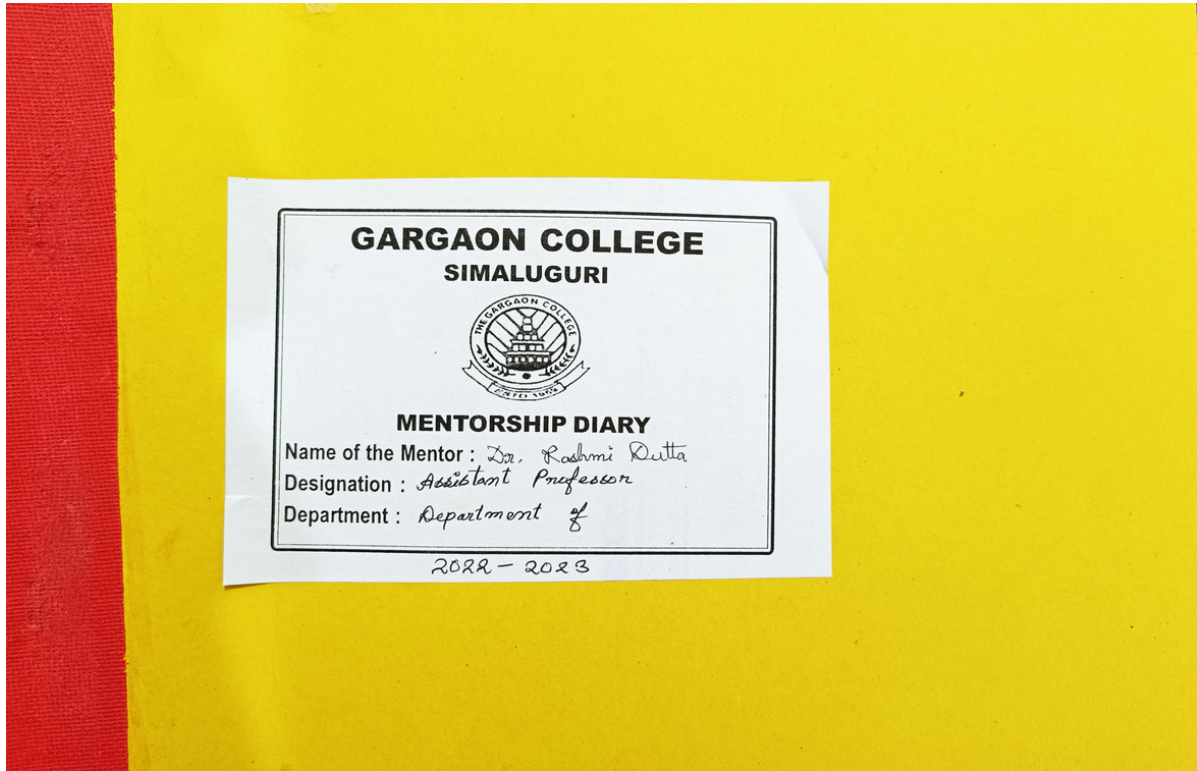 GARGAON COLLEGE
SIMALUGURI
THE GARGAON COLLEGE
ESTD 1959
MENTORSHIP DIARY
Name of the Mentor : Dr. Rashmi Dutta
Designation : Assistant Professor
Department : Department of
2022 - 2023